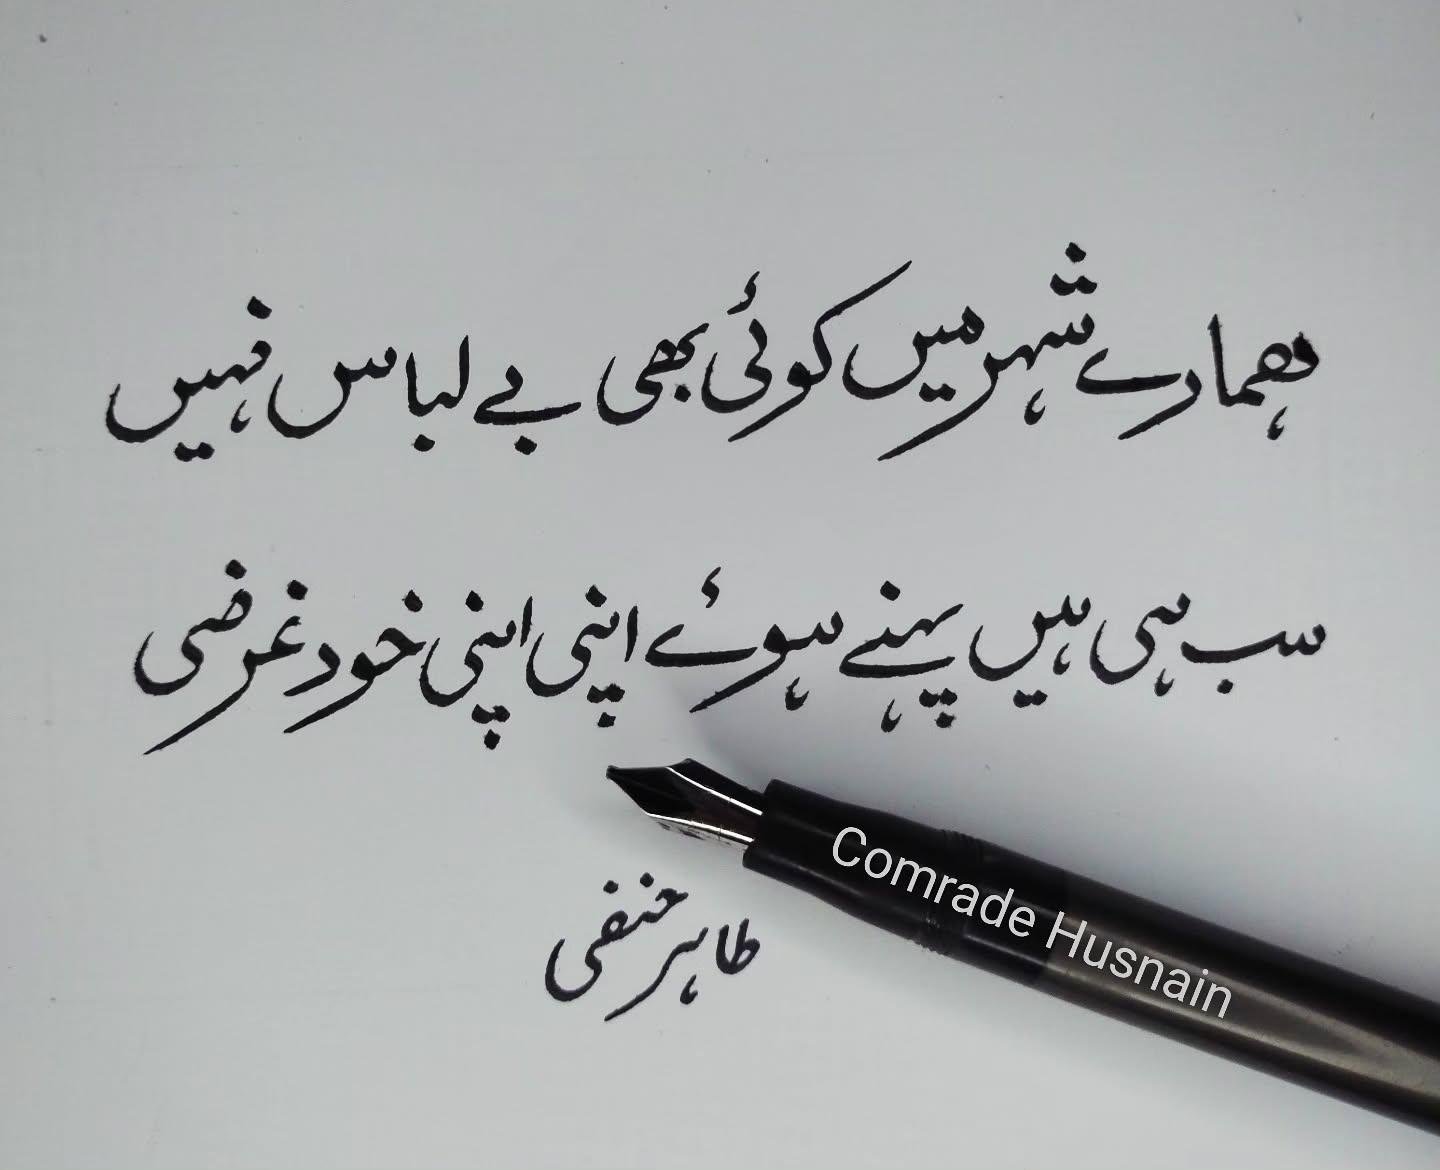 ھمارے شہر میں کوئی بھی بے لباس نہیں
سب ہی ہیں پہنے ہوئے اپنی اپنی خود غرضی
طاہر حنفی
Comrade Husnain